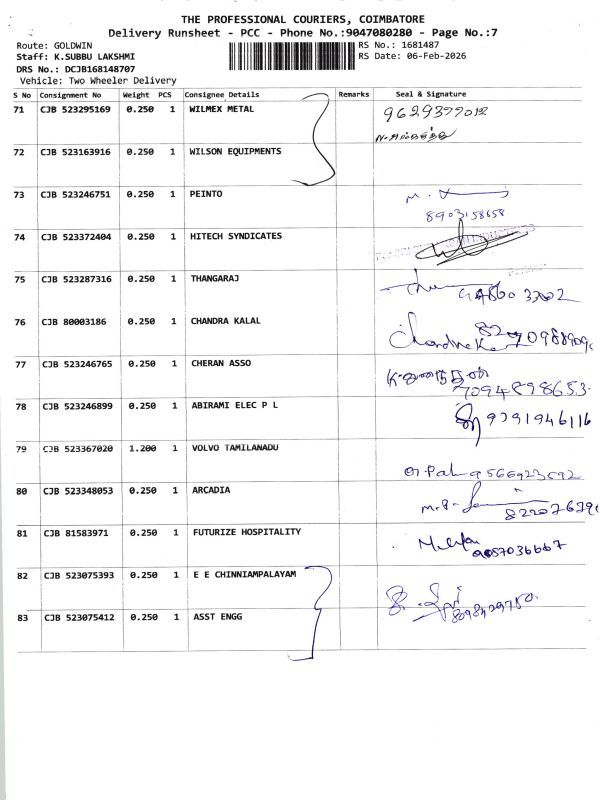 THE PROFESSIONAL COURIERS, COIMBATORE
Delivery Runsheet - PCC - Phone No.:9047080280 - Page No.:7
Route: GOLDWIN
RS No.: 1681487
Staff: K.SUBBU LAKSHMI
RS Date: 06-Feb-2026
DRS No.: DCJB168148707
Vehicle: Two Wheeler Delivery
S No Consignment No Weight PCS Consignee Details Remarks Seal & Signature
71 CJB 523295169 0.250 1 WILMEX METAL
72 CJB 523163916 0.250 1 WILSON EQUIPMENTS
73 CJB 523246751 0.250 1 PEINTO
8903158658
74 CJB 523372404 0.250 1 HITECH SYNDICATES
75 CJB 523287316 0.250 1 THANGARAJ
76 CJB 80003186 0.250 1 CHANDRA KALAL
77 CJB 523246765 0.250 1 CHERAN ASSO
7094898653
78 CJB 523246899 0.250 1 ABIRAMI ELEC P L
9791946116
79 CJB 523367020 1.200 1 VOLVO TAMILANADU
80 CJB 523348053 0.250 1 ARCADIA
81 CJB 81583971 0.250 1 FUTURIZE HOSPITALITY
82 CJB 523075393 0.250 1 E E CHINNIAMPALAYAM
83 CJB 523075412 0.250 1 ASST ENGG